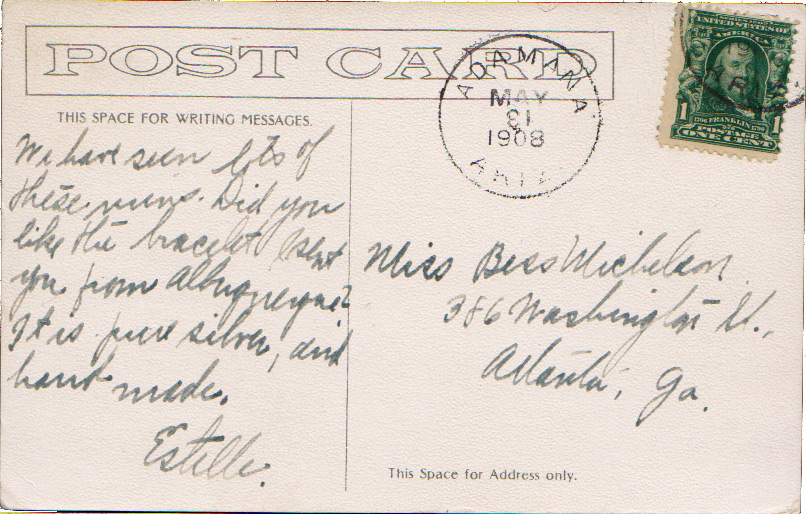 POST CARD
ADAMANA
MAY
31
1908
ARIZ.
UNITED STATES OF
AMERICA
1
1706 FRANKLIN 1790
POSTAGE
ONE CENT
THIS SPACE FOR WRITING MESSAGES.
We have seen lots of
these ruins. Did you
like the bracelet I sent
you from Albuquerque?
It is pure silver, and
hand made.
Estelle.
Miss Bess Michelson
386 Washington St.,
Atlanta, Ga.
This Space for Address only.